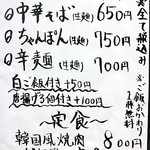 ◎中華そば(生麺) 650円
◎ちゃんぽん(生麺) 750円
◎辛麺(生麺) 700円
白ご飯付き+50円
唐揚げ3個付き+100円
〜定食〜
韓国風焼肉 800円
全て税込み
ご飯おかわり1杯無料